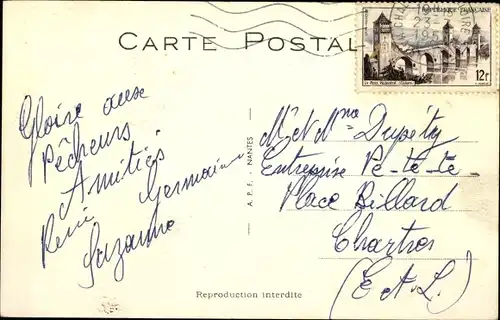 CARTE POSTALE
RÉPUBLIQUE FRANÇAISE
12f
Gloire aux
Pêcheurs
Amitiés
René Germain
Suzanne
A. P. F. - NANTES
Mr et Mme Dupéty
Entreprise Pe-te-te-
Place Billard
Chartres
(E et L.)
Reproduction interdite